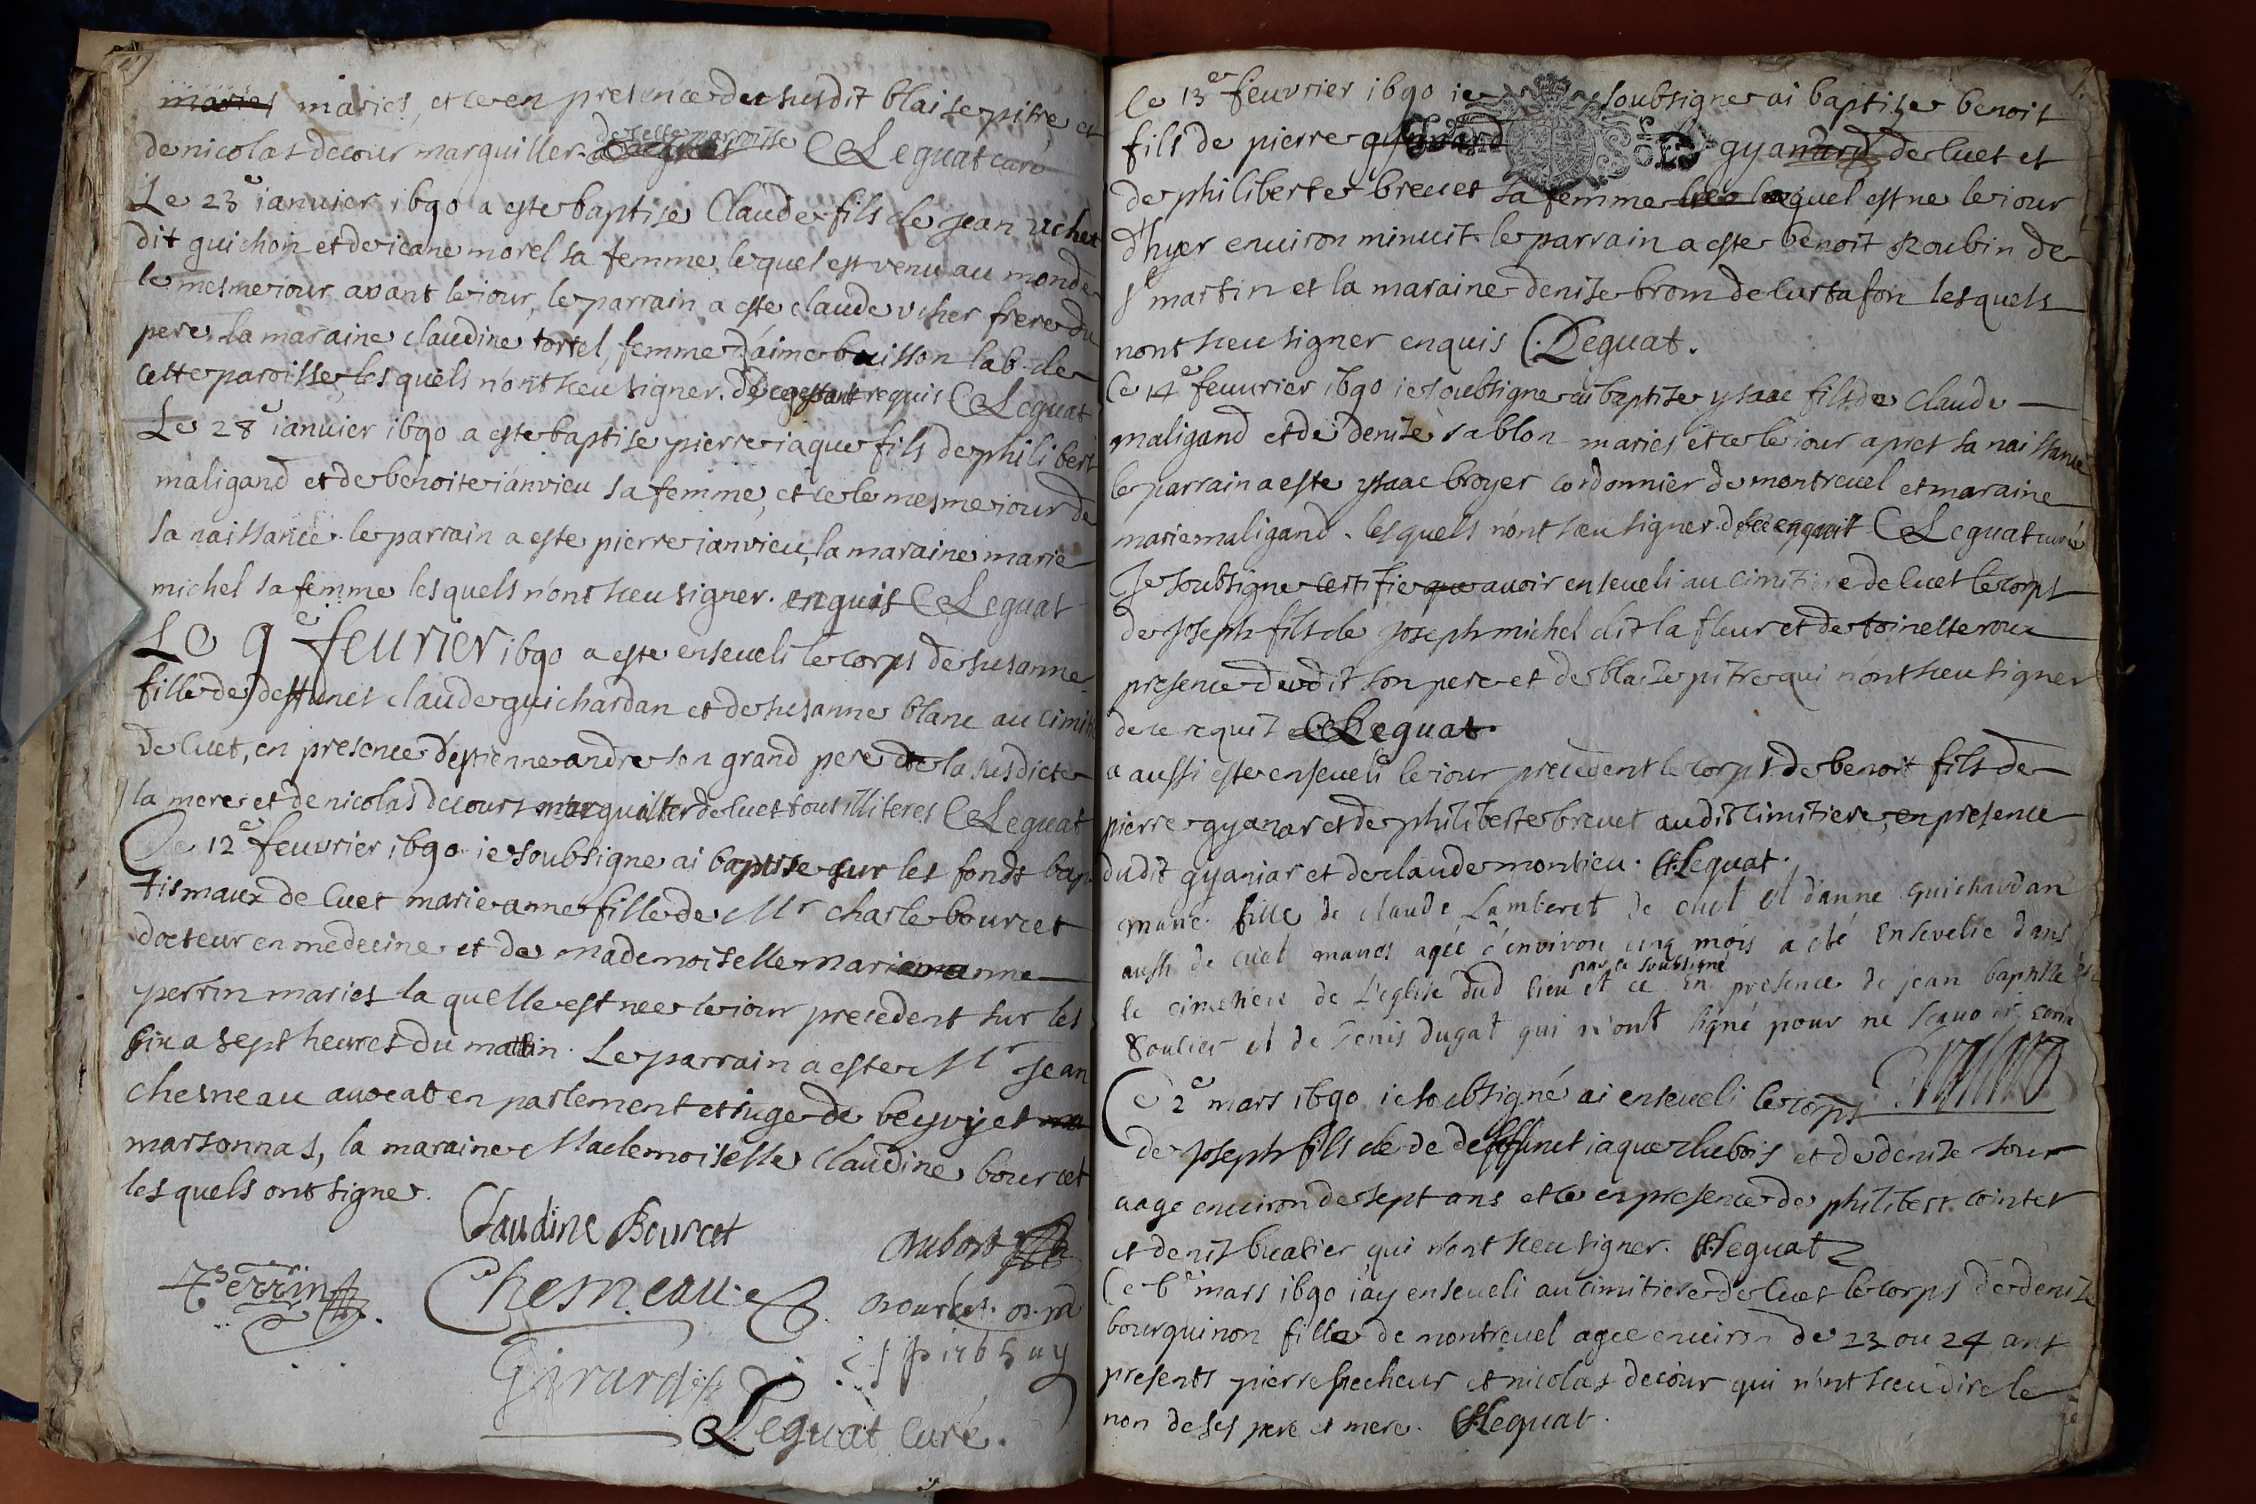 maries, et ce en presence du susdit blaise pitre et
de nicolas decour marguiller de cette parroisse CLeguat curé
Le 23e ianuier 1690 a este baptise Claude fils de jean vcher
dit guichon et de ieane morel sa femme, lequel est venu au monde
le mesme iour avant le iour, le parrain a este claude vcher frere du
pere, la maraine claudine tortel femme d'aime buisson lab. de
cette paroisse, lesquels n'ont sceu signer. de ce requis CLeguat
Le 28e ianuier 1690 a este baptise pierre iaque fils de philibert
maligand et de benoite ianvieu sa femme, et ce le mesme iour de
sa naissance. le parrain a este pierre ianvieu, la maraine marie
michel sa femme lesquels n'ont sceu signer. enquis CLeguat
Le 9e feurier 1690 a este enseueli le corps de susanne
fille de deffunct claude guichardan et de susanne blanc au cimit
de Cuet, en presence d'estienne andre son grand pere de la susdicte
la mere et de nicolas decours marguiller de Cuet tous illiteres CLeguat
Ce 12e feuurier 1690 ie soubsigne ai baptise sur les fonds bap
tismaux de Cuet marie anne fille de Mr charle bourcet
docteur en medecine et de mademoiselle marie anne
perrin maries la quelle est nee le iour precedent sur les
six a sept heures du matin. Le parrain a este Mr jean
chesneau auocat en parlement et iuge de beyvij et
marsonnas, la maraine Mademoiselle claudine bourcet
lesquels ont signe.
Claudine Bourcet
Perrin
Chesneau
Girard
Leguat Curé.
Ce 13e feuurier 1690 ie soubsigne ai baptise benoit
fils de pierre gyanard de Cuet et
de philiberte breuet sa femme lequel est ne le iour
d'hyer enuiron minuit. le parrain a este benoit Roubin de
st martin et la maraine denise brom de Curtafon lesquels
nont sceu signer enquis CLeguat.
Ce 14e feuurier 1690 ie soubsigne ai baptise ysaac fils de claude
maligand et de denise sablon maries et ce le iour apres sa naissance
le parrain a este ysaac broyer cordonnier de montreuel et maraine
marie maligand. lesquels n'ont sceu signer. de ce enquis CLeguat curé
Je soubsigne certifie auoir enseueli au cimitiere de Cuet le corps
de Joseph fils de Joseph michel dit la fleur et de toinette roux
presence dudit son pere et de blaise pitre qui n'ont sceu signer
de ce requis CLeguat.
a aussi este enseueli le iour precedent le corps de benoit fils de
pierre gyanar et de philiberte breuet audit cimitiere, en presence
dudit gyaniar et de claude montieu. CLeguat.
marie fille de claude Lamberet de cuet et d'anne guichardan
aussi de cuet mariés agée d'environ cinq mois a eté Ensevelie dans
le cimetiere de L'eglise dud lieu par le soubsigné et ce en presence de jean baptiste
Soulier et de Denis dugat qui n'ont signé pour ne scauoir
Ce 2e mars 1690 ie soubsigné ai enseueli le corps
de Joseph fils de deffunct iaque dubois et de denise
aage enuiron de sept ans et ce en presence de philibert cointet
et denis buatier qui n'ont sceu signer. CLeguat
Ce 6e mars 1690 i'ay enseueli au cimitiere de Cuet le corps de denise
bourguinon fille de montreuel agee enuiron de 23 ou 24 ans
presents pierre pecheur et nicolas decour qui n'ont sceu dire le
non de ses pere et mere. CLeguat.